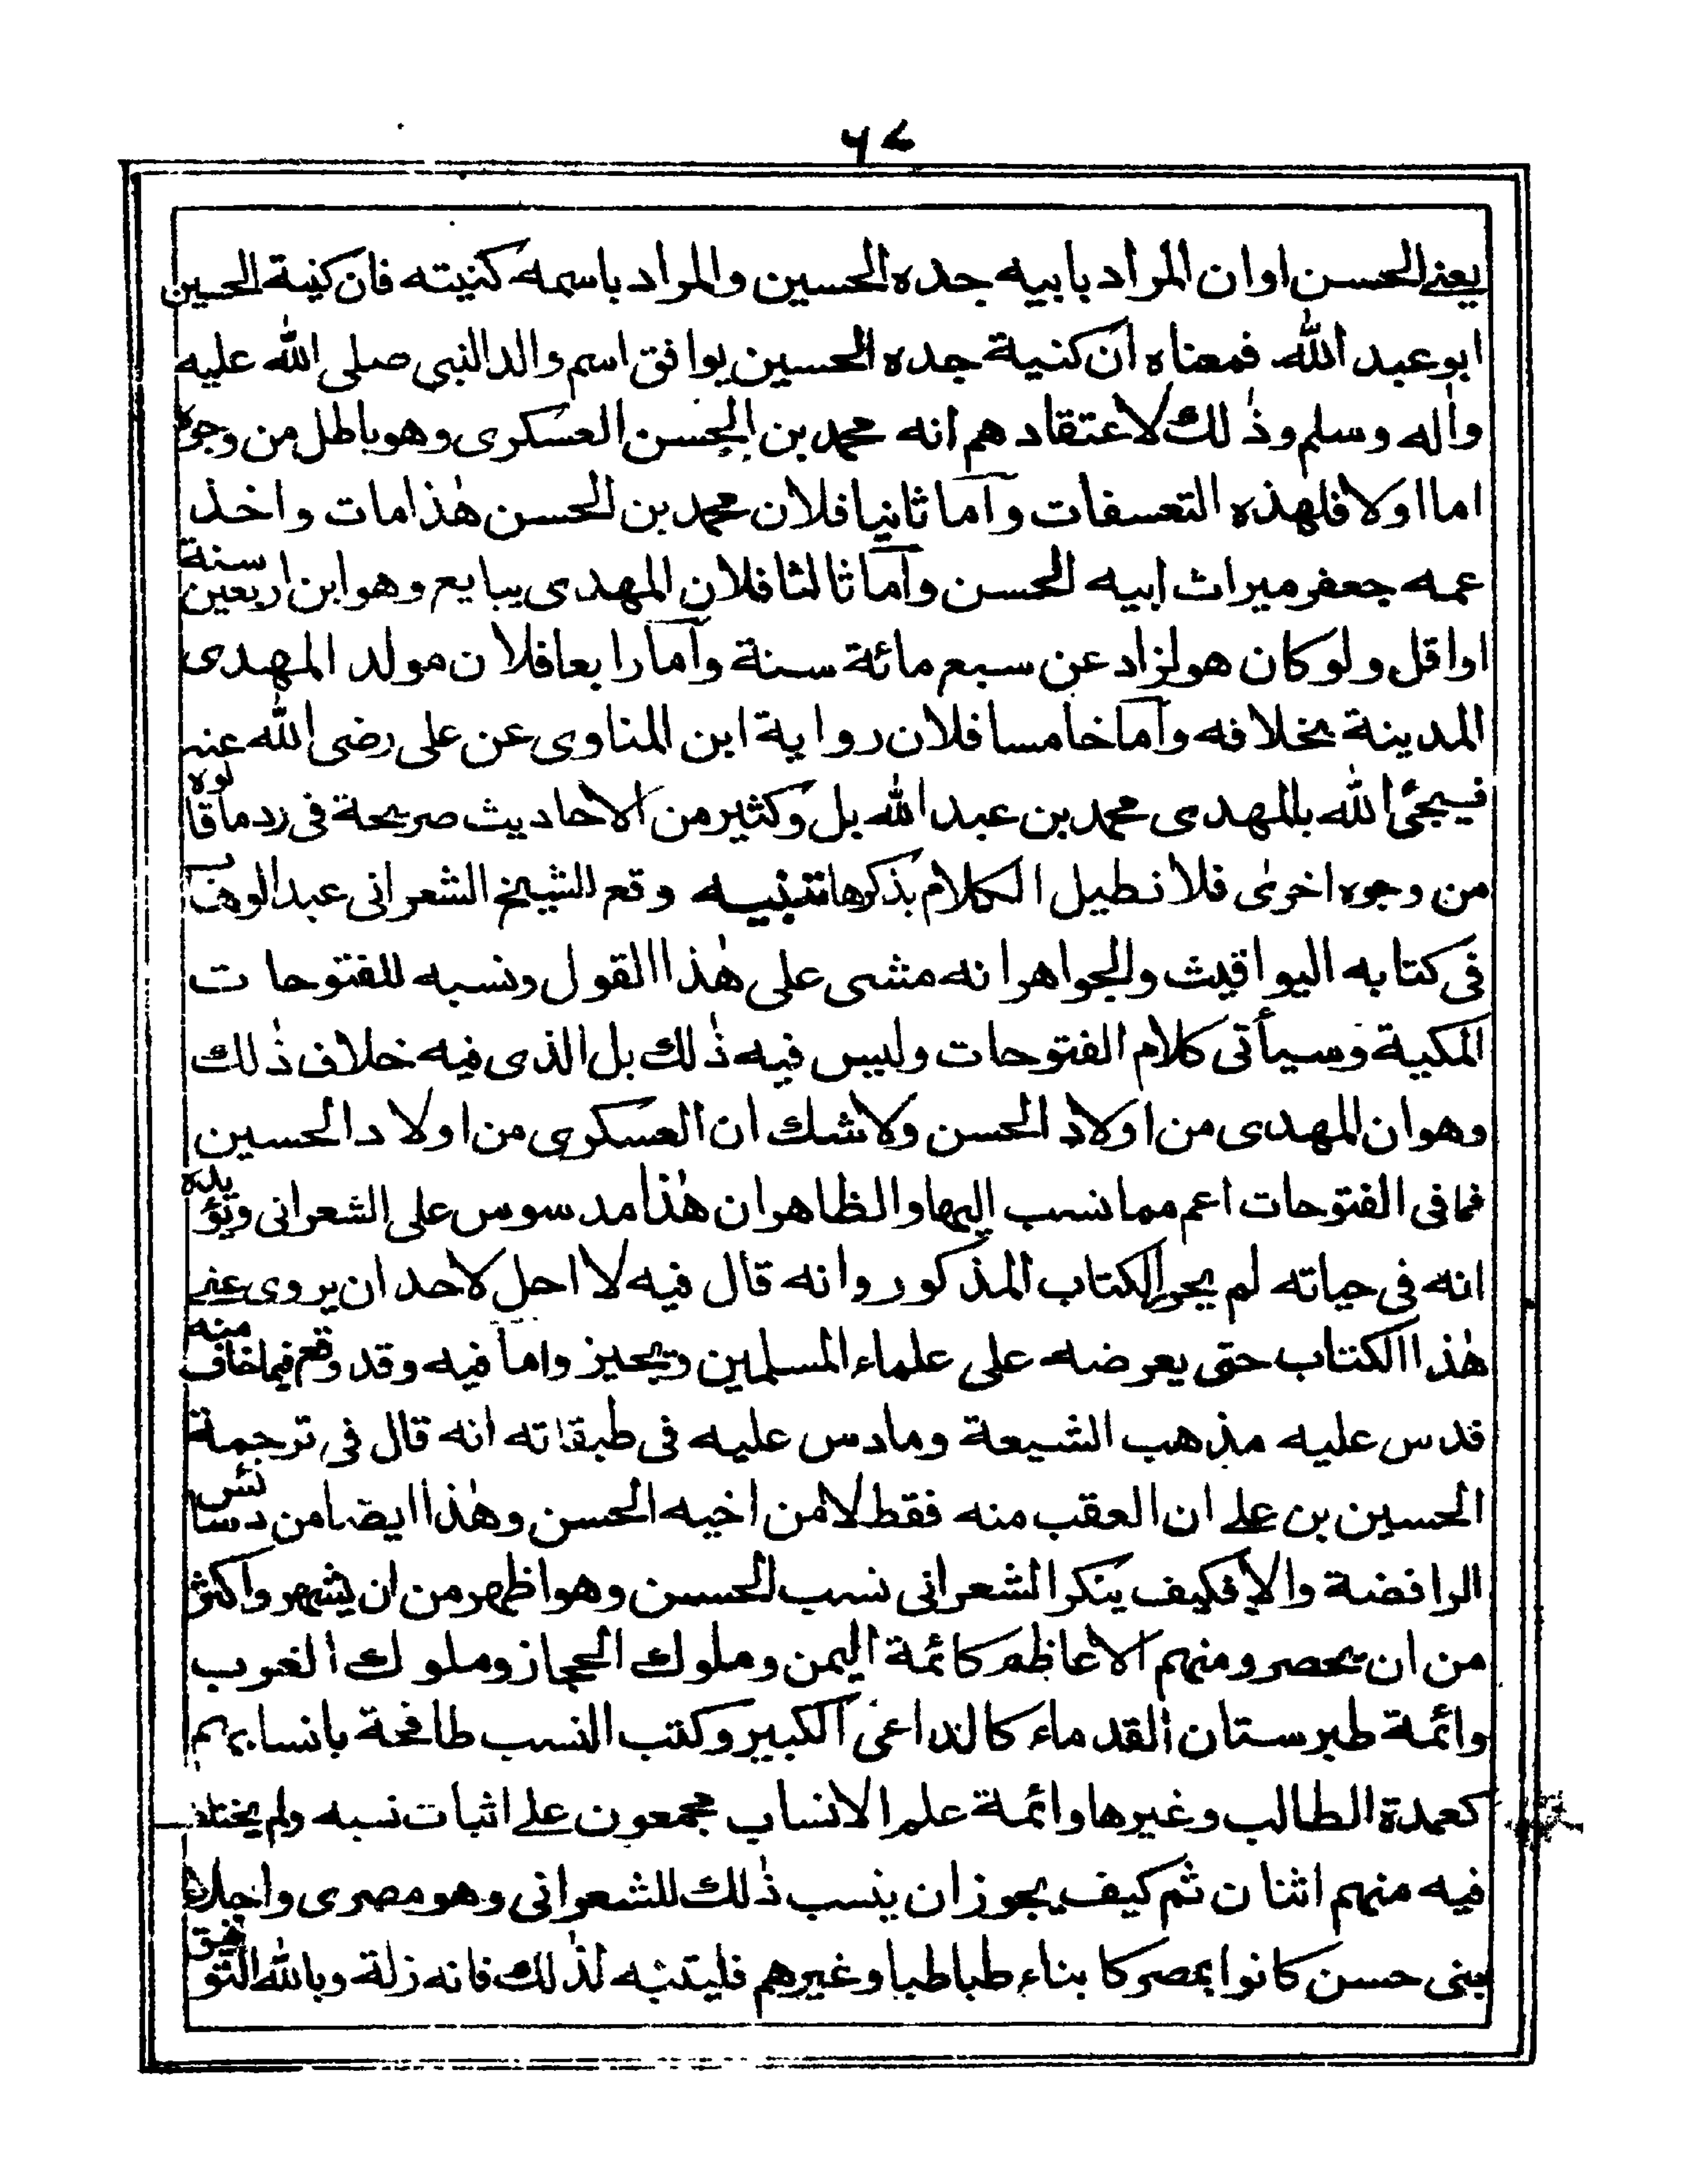 ٦٧
يعنے الحسن او ان المراد بابيه جده الحسين والمراد باسمه كنيته فان كنية الحسين
ابو عبد الله فمعناه ان كنية جده الحسين يوافق اسم والد النبي صلى الله عليه
واٰله وسلم وذٰلك لاعتقادهم انه محمد بن الحسن العسكرى وهو باطل من وجوه
اما اولا فلهذه التعسفات واما ثانيا فلان محمد بن الحسن هٰذا مات واخذ
عمه جعفر ميراث ابيه الحسن واما ثالثا فلان المهدى يبايع وهو ابن اربعين سنة
او اقل ولو كان هو لزاد عن سبع مائة سنة واما رابعا فلان مولد المهدى
المدينة بخلافه واما خامسا فلان رواية ابن المناوى عن على رضى الله عنه
فيجئ الله بالمهدى محمد بن عبد الله بل وكثير من الاحاديث صريحة فى رد ما قالوه
من وجوه اخرىٰ فلا نطيل الكلام بذكرها تنبيه وقع للشيخ الشعرانى عبد الوهاب
فى كتابه اليواقيت والجواهر انه مشى على هٰذا القول ونسبه للفتوحات
المكية وسيأتى كلام الفتوحات وليس فيه ذٰلك بل الذى فيه خلاف ذٰلك
وهو ان المهدى من اولاد الحسن ولاشك ان العسكرى من اولاد الحسين
فما فى الفتوحات اعم مما نسب اليها والظاهر ان هٰذا مدسوس على الشعرانى ويؤيده
انه فى حياته لم يحرر الكتاب المذكور وانه قال فيه لا احل لاحد ان يروى عنے
هٰذا الكتاب حتى يعرضه على علماء المسلمين ويجيزوا ما فيه وقد وقع فيما خاف منه
فدس عليه مذهب الشيعة ومادس عليه فى طبقاته انه قال فى ترجمة
الحسين بن علے ان العقب منه فقط لا من اخيه الحسن وهٰذا ايضا من دسائس
الرافضة والا فكيف ينكر الشعرانى نسب الحسن وهو اظهر من ان يشهر واكثر
من ان يحصر ومنهم الاعاظم كائمة اليمن وملوك الحجاز وملوك الغرب
وائمة طبرستان القدماء كالداعى الكبير وكتب النسب طافحة بانسابهم
كعمدة الطالب وغيرها وائمة علم الانساب مجمعون علے اثبات نسبه ولم يختلف
فيه منهم اثنان ثم كيف يجوز ان ينسب ذٰلك للشعرانى وهو مصرى واجلاء
بنى حسن كانوا بمصر كابناء طباطبا وغيرهم فليتنبه لذٰلك فانه زلة وبالله التوفيق